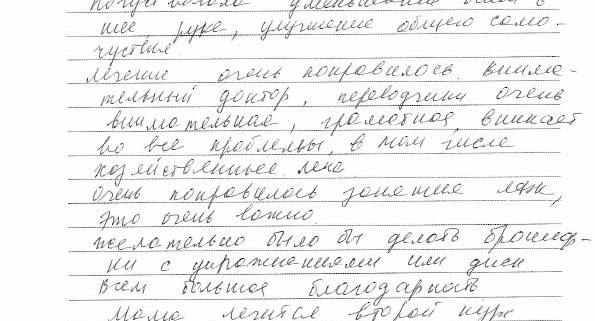 уменьшение боли в
шее руке, улучшение общего само-
чуствие.
лечение очень понравилось. Внима-
тельный доктор, переводчики очень
внимательная, грамотная, вникает
во все проблемы, в том числе
хозяйственные. Лена
Очень понравилось занятие ЛФК,
это очень важно
желательно было бы делать брошюр-
ки с упражнениями или диск
Всем большая благодарность
Мама лечится второй курс